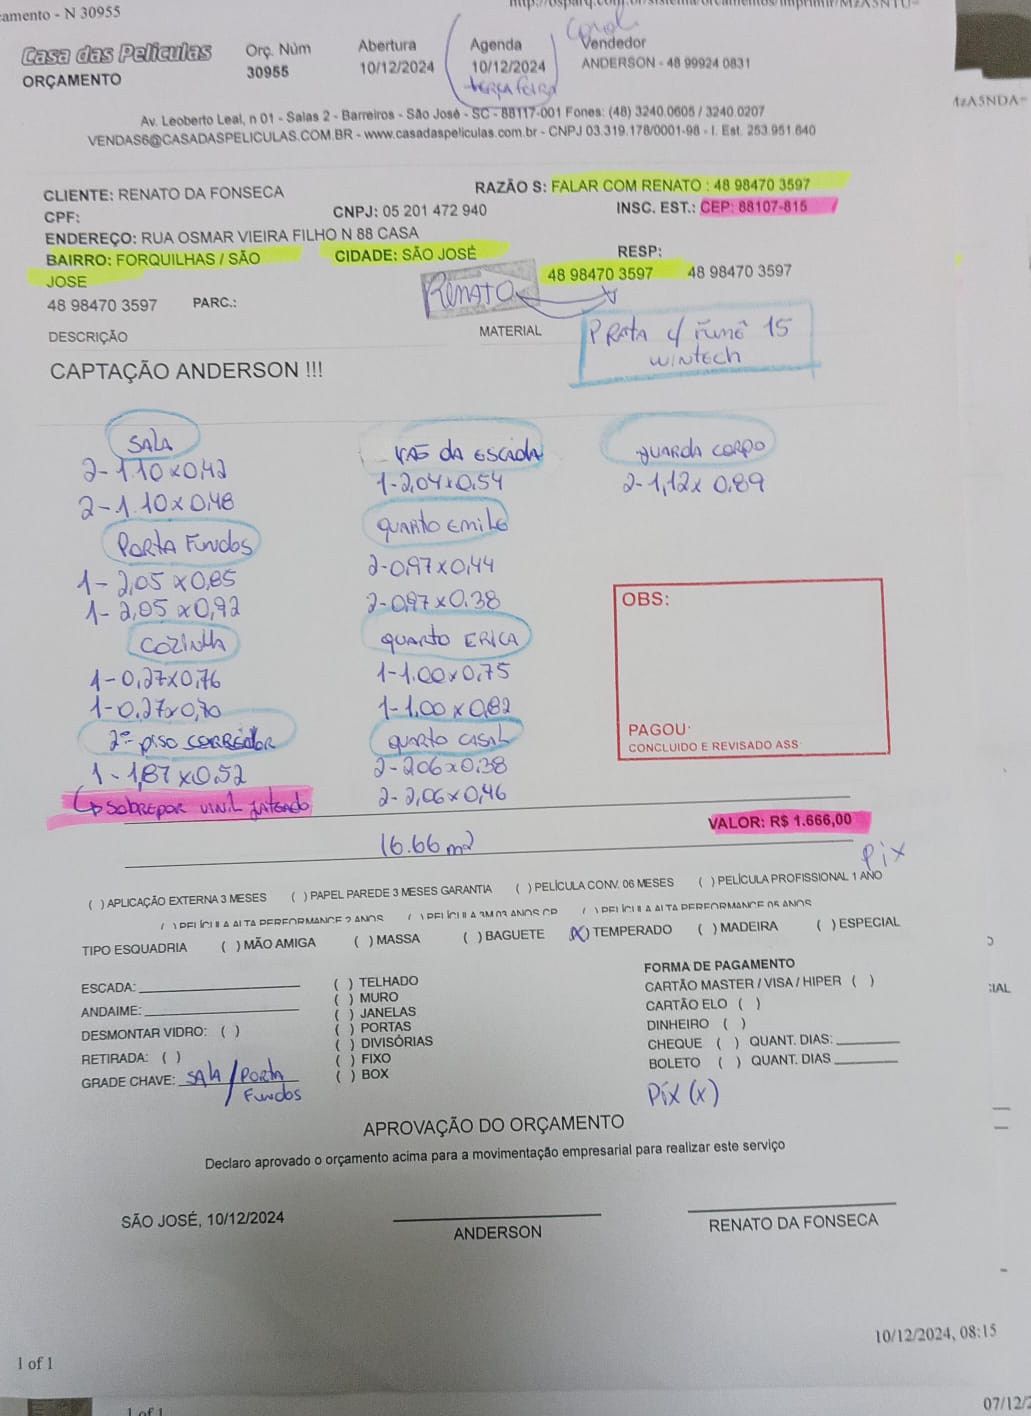 amento - N 30955
MzA5NDA=
Casa das Películas
ORÇAMENTO
Orç. Núm
30955
Abertura
10/12/2024
Agenda
10/12/2024
terça feira
Vendedor
ANDERSON - 48 99924 0831
Av. Leoberto Leal, n 01 - Salas 2 - Barreiros - São José - SC - 88117-001 Fones: (48) 3240.0605 / 3240.0207
VENDAS6@CASADASPELICULAS.COM.BR - www.casadaspeliculas.com.br - CNPJ 03.319.178/0001-98 - I. Est. 253.951.640
CLIENTE: RENATO DA FONSECA
RAZÃO S: FALAR COM RENATO : 48 98470 3597
CPF:
CNPJ: 05 201 472 940
INSC. EST.: CEP: 88107-815
ENDEREÇO: RUA OSMAR VIEIRA FILHO N 88 CASA
BAIRRO: FORQUILHAS / SÃO
JOSE
CIDADE: SÃO JOSÉ
RESP:
48 98470 3597 48 98470 3597
48 98470 3597 PARC.:
Renato
DESCRIÇÃO
MATERIAL
PRATA c/ Fumê 15
WINTECH
CAPTAÇÃO ANDERSON !!!
SALA
2-1.10x0,42
2-1.10x0,48
PORTA Fundos
1-2,05x0,85
1-2,05x0,92
COZINHA
1-0,27x0,76
1-0,27x0,70
2º piso corredor
1-1,87x0,52
↳ Sobrepor vinil jateado
VÃO da ESCADA
1-2,04x0,54
quarto Emile
2-0,97x0,44
2-0,97x0,38
quarto ERICA
1-1.00x0,75
1-1.00x0,82
quarto casal
2-206x0,38
2-2,06x0,46
guarda corpo
2-1,12x0,89
OBS:
PAGOU:
CONCLUIDO E REVISADO ASS
16.66 m2
VALOR: R$ 1.666,00
Pix
( ) APLICAÇÃO EXTERNA 3 MESES ( ) PAPEL PAREDE 3 MESES GARANTIA ( ) PELÍCULA CONV. 06 MESES ( ) PELÍCULA PROFISSIONAL 1 ANO
( ) PELÍCULA ALTA PERFORMANCE 2 ANOS ( ) PELÍCULA 3M 03 ANOS CP ( ) PELÍCULA ALTA PERFORMANCE 05 ANOS
TIPO ESQUADRIA ( ) MÃO AMIGA ( ) MASSA ( ) BAGUETE (X) TEMPERADO ( ) MADEIRA ( ) ESPECIAL
ESCADA:
ANDAIME:
DESMONTAR VIDRO: ( )
RETIRADA: ( )
GRADE CHAVE: SALA / PORTA
Fundos
( ) TELHADO
( ) MURO
( ) JANELAS
( ) PORTAS
( ) DIVISÓRIAS
( ) FIXO
( ) BOX
FORMA DE PAGAMENTO
CARTÃO MASTER / VISA / HIPER ( )
CARTÃO ELO ( )
DINHEIRO ( )
CHEQUE ( ) QUANT. DIAS:
BOLETO ( ) QUANT. DIAS
Pix (x)
CIAL
APROVAÇÃO DO ORÇAMENTO
Declaro aprovado o orçamento acima para a movimentação empresarial para realizar este serviço
SÃO JOSÉ, 10/12/2024
ANDERSON
RENATO DA FONSECA
10/12/2024, 08:15
1 of 1
1 of 1
07/12/2